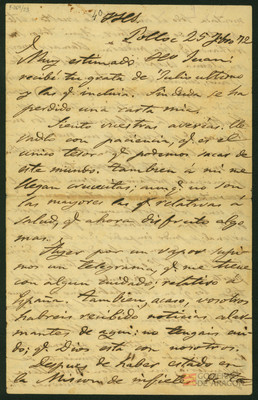 Polloc 25 
Muy estimado Juan:
recibí tu grata de Julio ultimo
y las q.e incluia. Sin duda se ha
perdido una carta mia.
Siento vuestras averias. Lle
vadlo con paciencia, q.e es el
unico tesoro q.e podemos sacar de
este mundo. Tambien á mi me
llegan crucecitas; aunq.e no son
las mayores las q.e relativas á
salud, q.e ahora disfruto algo
mas.
Ayer por un vapor supi
mos un telegrama, q.e me tiene
con algun cuidado, relativo á
España. Tambien, acaso, vosotros
habreis recibido noticias alar
mantes de aqui: no tengais mie
do; q.e Dios está con nosotros.
Despues de haber estado en
la Mision de infieles
GOBIERNO
DE ARAGON